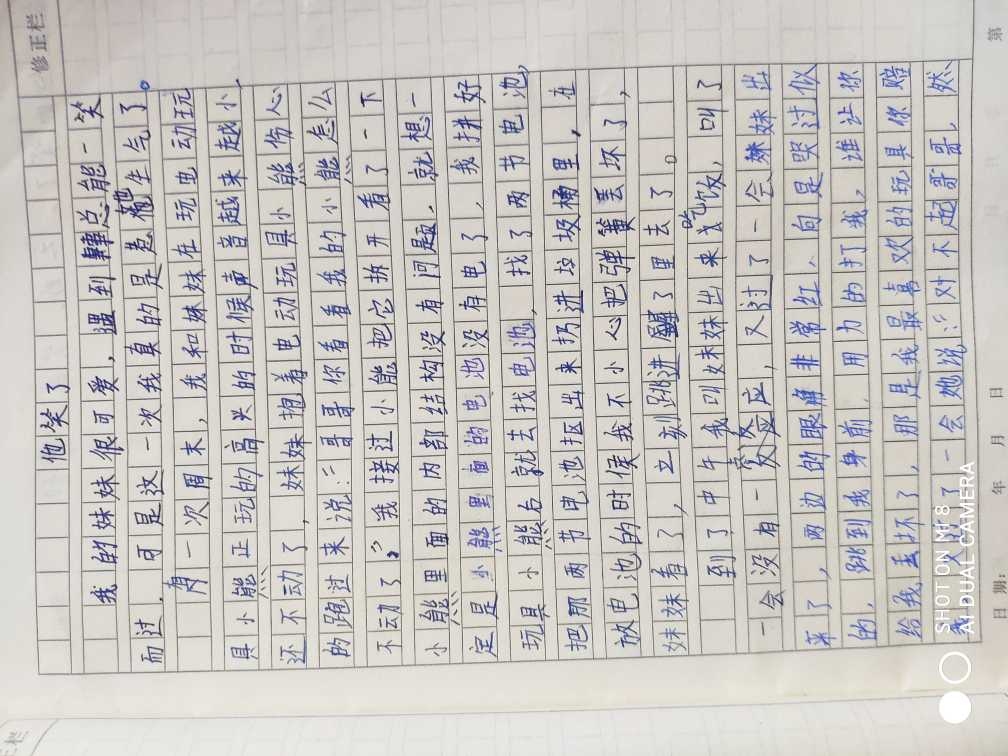 修正栏
他笑了
我的妹妹很可爱，遇到总能一笑
而过，可是这一次我真的是惹她生气了。
有一次周末，我和妹妹在玩电动玩
具小熊正玩的高兴的时候声音越来越小，
还不动了，妹妹抱着电动玩具小熊伤心
的跑过来说：“哥哥你看看我的小熊怎么
不动了？”我接过小熊把它拆开看了一下
小熊里面的内部结构没有问题，就想一
定是小熊里面的电池没有电了，我拼好
玩具小熊后就去找电池，找了两节电池，
把那两节电池抠出来扔进垃圾桶里，在
放电池的时侯我不小心把弹簧丢坏了，
妹妹看了，立刻跳进屋了里去了。
到了中午我叫妹妹出来吃饭，叫了
一会没有一点反应，又过了一会妹妹出
来了，两边的眼睛非常红，向是哭过似
的，跳到我身前，用力的打我，谁让你
给我丢坏了，那是我最喜欢的玩具你赔
我，又打了一会她说：“对不起哥哥，然
SHOT ON MI 8
AI DUAL CAMERA
日期：
年 月 日
第
正栏